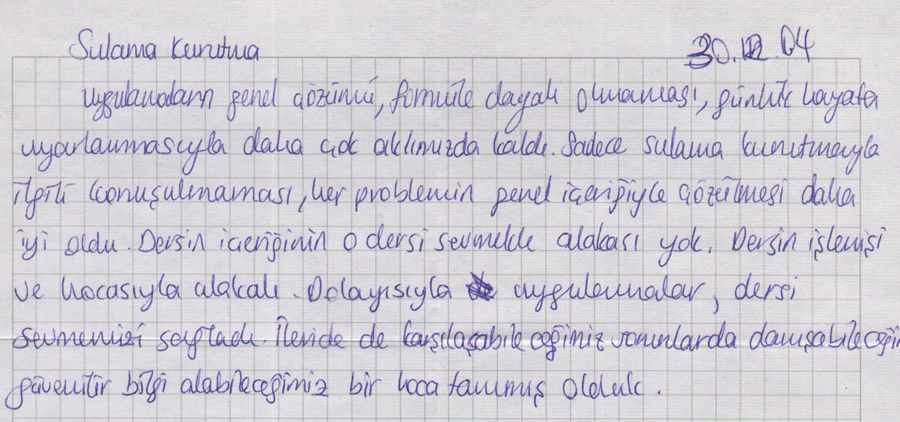 Sulama Kurutma 30.12.04
Uygulamaların genel çözümü, formüle dayalı olmaması, günlük hayata
uyarlanmasıyla daha çok aklımızda kaldı. Sadece sulama kurutmayla
ilgili konuşulmaması, her problemin genel içeriğiyle çözülmesi daha
iyi oldu. Dersin içeriğinin o dersi sevmekle alakası yok. Dersin işlenişi
ve hocasıyla alakalı. Dolayısıyla uygulamalar, dersi
sevmemizi sağladı. İleride de karşılaşabileceğimiz sorunlarda danışabileceğim
güvenilir bilgi alabileceğimiz bir hoca tanımış olduk.